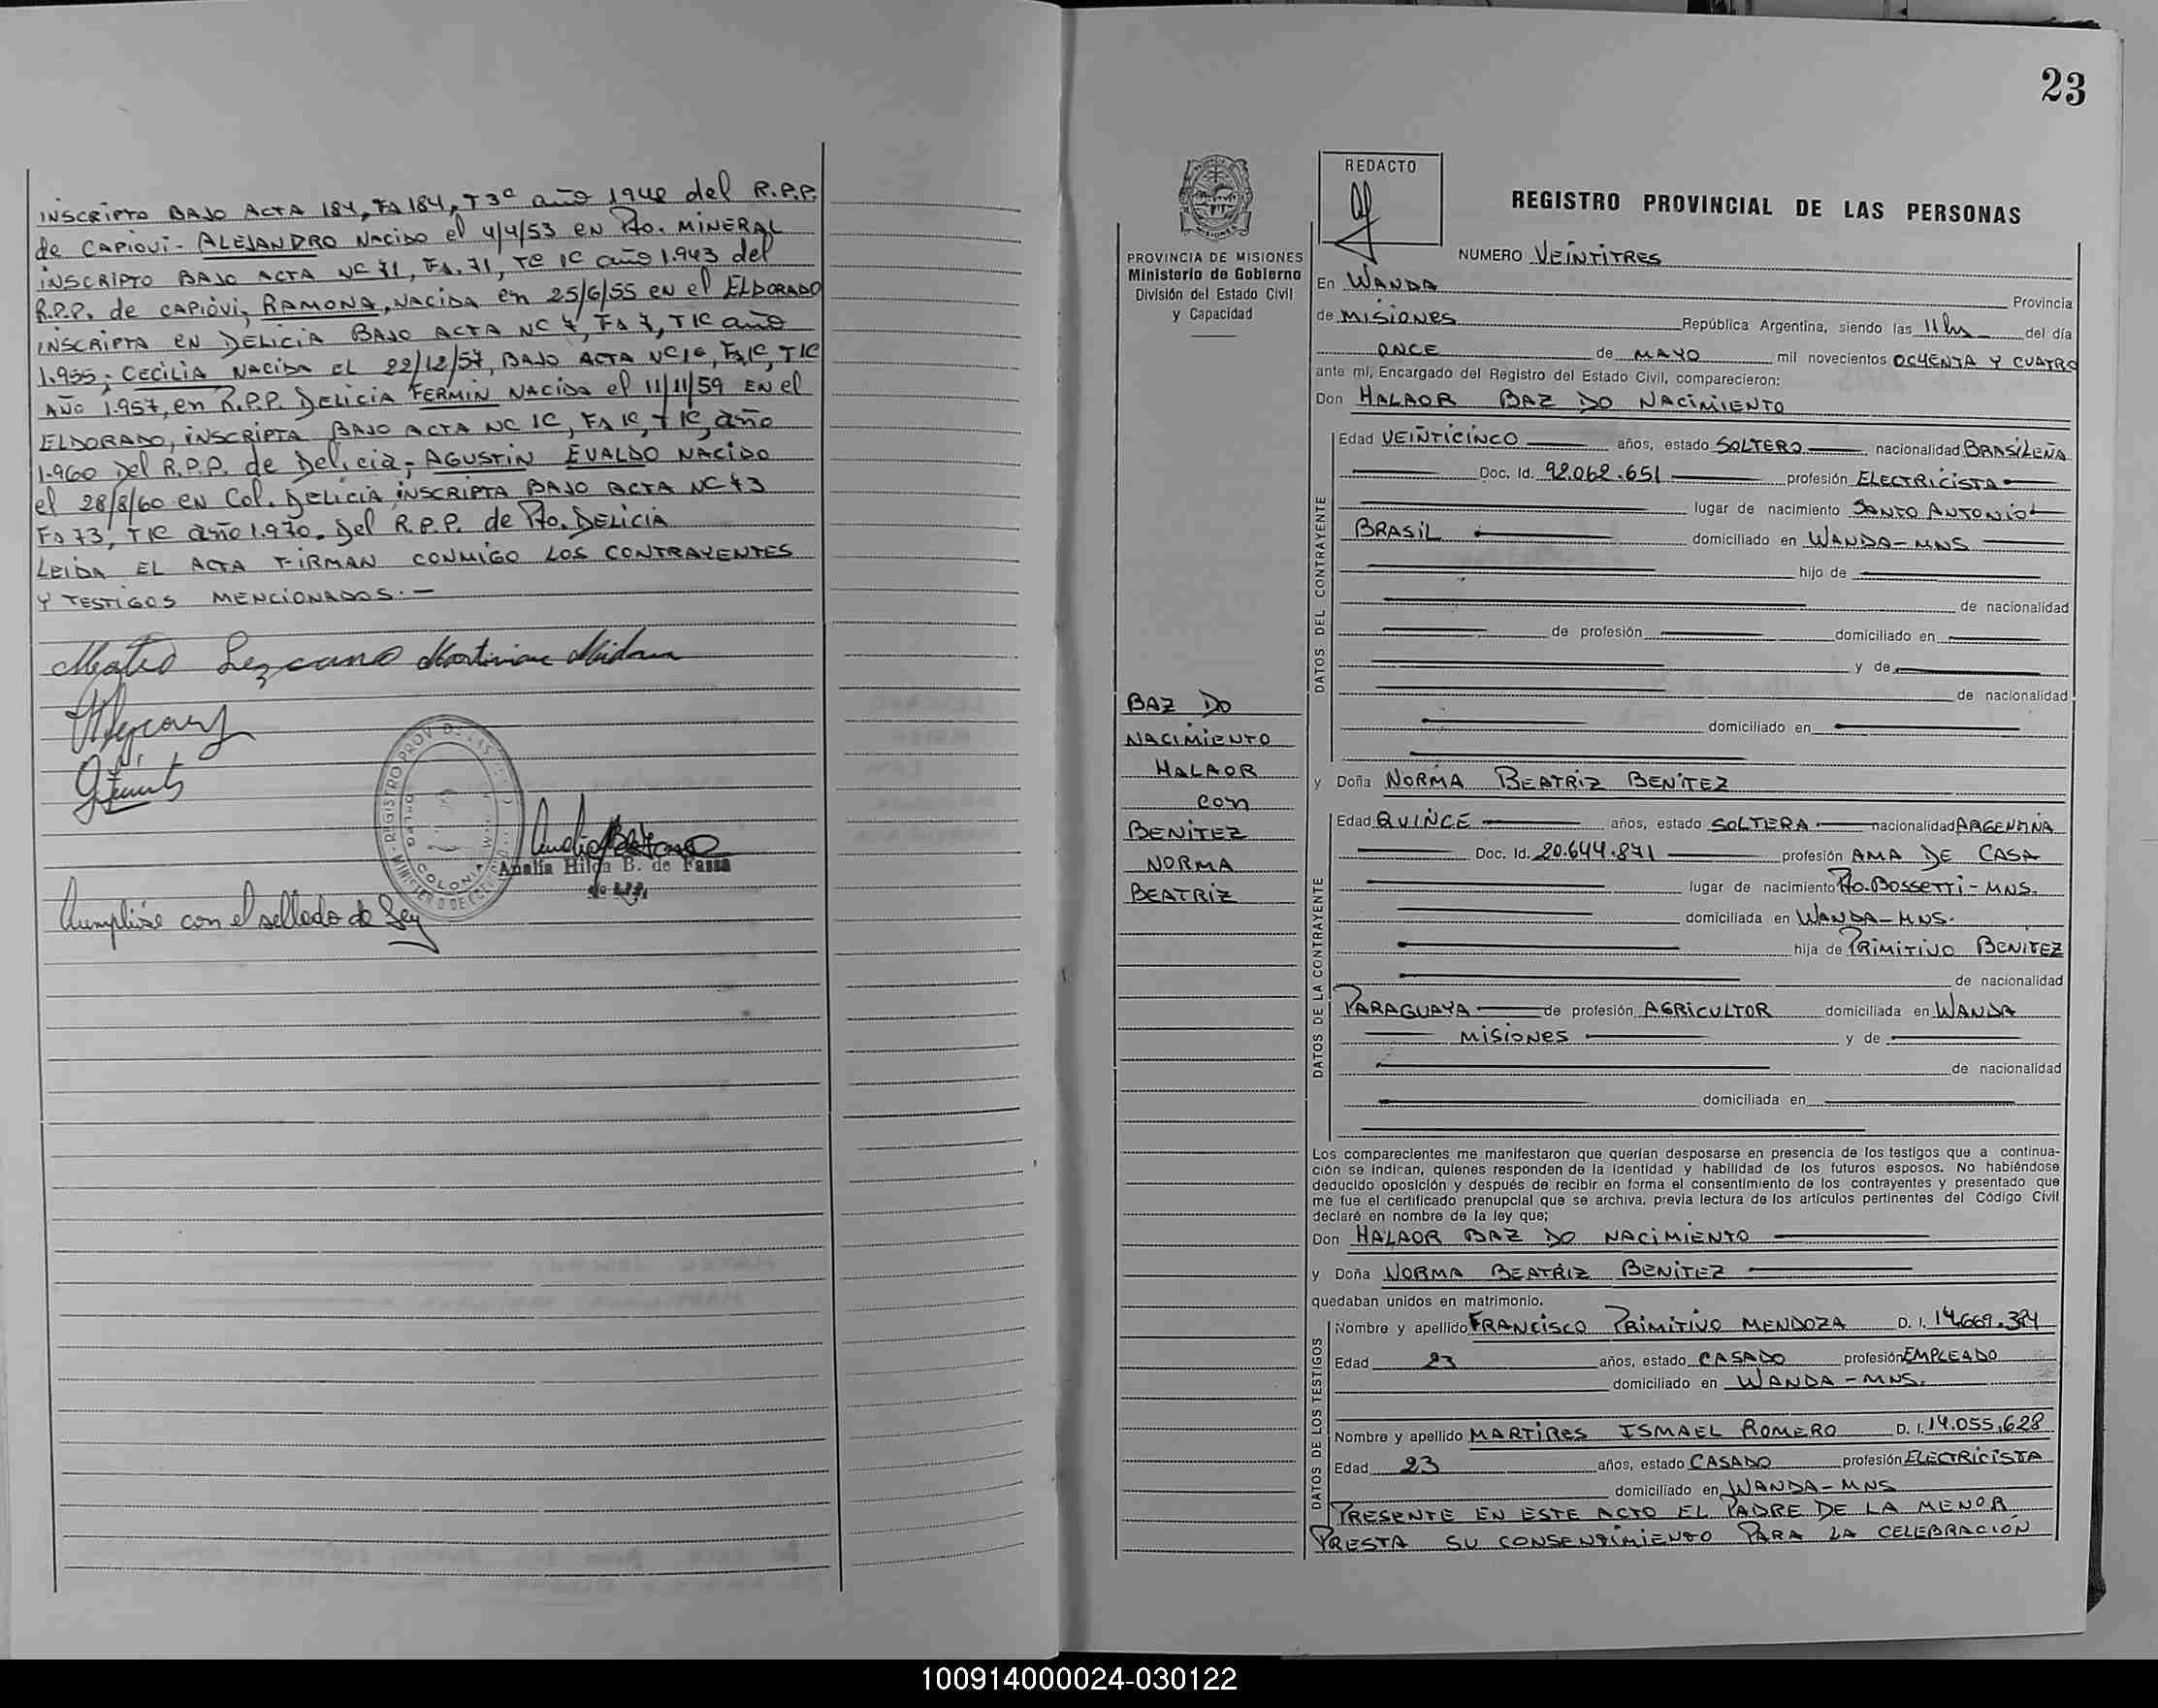 INSCRIPTO BAJO ACTA 184, Fº 184, T 3º año 1948 del R.P.P.
de CAPIOVI - ALEJANDRO NACIDO el 4/4/53 EN Pto. MINERAL
INSCRIPTO BAJO ACTA Nº 71, Fº. 71, Tº 1º año 1.943 del
R.P.P. de CAPIOVI, RAMONA, NACIDA en 25/6/55 EN el ELDORADO
INSCRIPTA EN DELICIA BAJO ACTA Nº 7, Fº 7, T1º año
1.955; CECILIA NACIDA EL 22/12/57, BAJO ACTA Nº 1º, Fº 1º, T1º
AÑO 1.957, en R.P.P. DELICIA FERMIN NACIDA el 11/11/59 EN el
ELDORADO, INSCRIPTA BAJO ACTA Nº 1º, Fº 1º, T 1º, año
1.960 Del R.P.P. de Delicia; AGUSTIN EVALDO NACIDO
el 28/8/60 EN Col. DELICIA INSCRIPTA BAJO ACTA Nº 73
Fº 73, T1º año 1.970. Del R.P.P. de Pto. DELICIA
LEIDA EL ACTA FIRMAN CONMIGO LOS CONTRAYENTES
Y TESTIGOS MENCIONADOS. -
Mateo Lezcano
Analía Hilda B. de Fassa
Cumplióse con el sellado de Ley
23
REDACTO
REGISTRO PROVINCIAL DE LAS PERSONAS
PROVINCIA DE MISIONES
Ministerio de Gobierno
División del Estado Civil
y Capacidad
NUMERO VEINTITRES
En WANDA Provincia
de MISIONES República Argentina, siendo las 11 hs del día
ONCE de MAYO mil novecientos OCHENTA Y CUATRO
ante mí, Encargado del Registro del Estado Civil, comparecieron:
Don HALAOR BAZ DO NACIMIENTO
DATOS DEL CONTRAYENTE
Edad VEINTICINCO años, estado SOLTERO nacionalidad BRASILEÑA
Doc. Id. 92.062.651 profesión ELECTRICISTA
lugar de nacimiento SANTO ANTONIO
BRASIL domiciliado en WANDA-MNS
hijo de
de nacionalidad
de profesión domiciliado en
y de
de nacionalidad
domiciliado en
BAZ DO
NACIMIENTO
HALAOR
con
BENITEZ
NORMA
BEATRIZ
y Doña NORMA BEATRIZ BENITEZ
DATOS DE LA CONTRAYENTE
Edad QUINCE años, estado SOLTERA nacionalidad ARGENTINA
Doc. Id. 20.644.841 profesión AMA DE CASA
lugar de nacimiento Pto. BOSSETTI-MNS.
domiciliada en WANDA-MNS.
hija de PRIMITIVO BENITEZ
de nacionalidad
PARAGUAYA de profesión AGRICULTOR domiciliada en WANDA
MISIONES y de
de nacionalidad
domiciliada en
Los comparecientes me manifestaron que querían desposarse en presencia de los testigos que a continua-
ción se indican, quienes responden de la identidad y habilidad de los futuros esposos. No habiéndose
deducido oposición y después de recibir en forma el consentimiento de los contrayentes y presentado que
me fue el certificado prenupcial que se archiva, previa lectura de los artículos pertinentes del Código Civil
declaré en nombre de la ley que;
Don HALAOR BAZ DO NACIMIENTO
y Doña NORMA BEATRIZ BENITEZ
quedaban unidos en matrimonio.
DATOS DE LOS TESTIGOS
Nombre y apellido FRANCISCO PRIMITIVO MENDOZA D. I. 14.669.384
Edad 23 años, estado CASADO profesión EMPLEADO
domiciliado en WANDA-MNS.
Nombre y apellido MARTIRES ISMAEL ROMERO D. I. 14.055.628
Edad 23 años, estado CASADO profesión ELECTRICISTA
domiciliado en WANDA-MNS
PRESENTE EN ESTE ACTO EL PADRE DE LA MENOR
PRESTA SU CONSENTIMIENTO PARA LA CELEBRACION
100914000024-030122